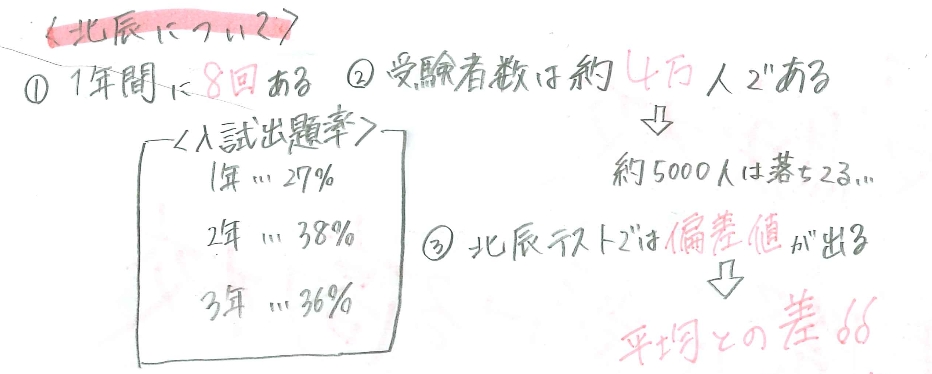 〈北辰について〉
① 1年間に8回ある
② 受験者数は約4万人である
⇩
約5000人は落ちてる...
〈入試出題率〉
1年…27%
2年…38%
3年…36%
③ 北辰テストでは偏差値が出る
⇩
平均との差